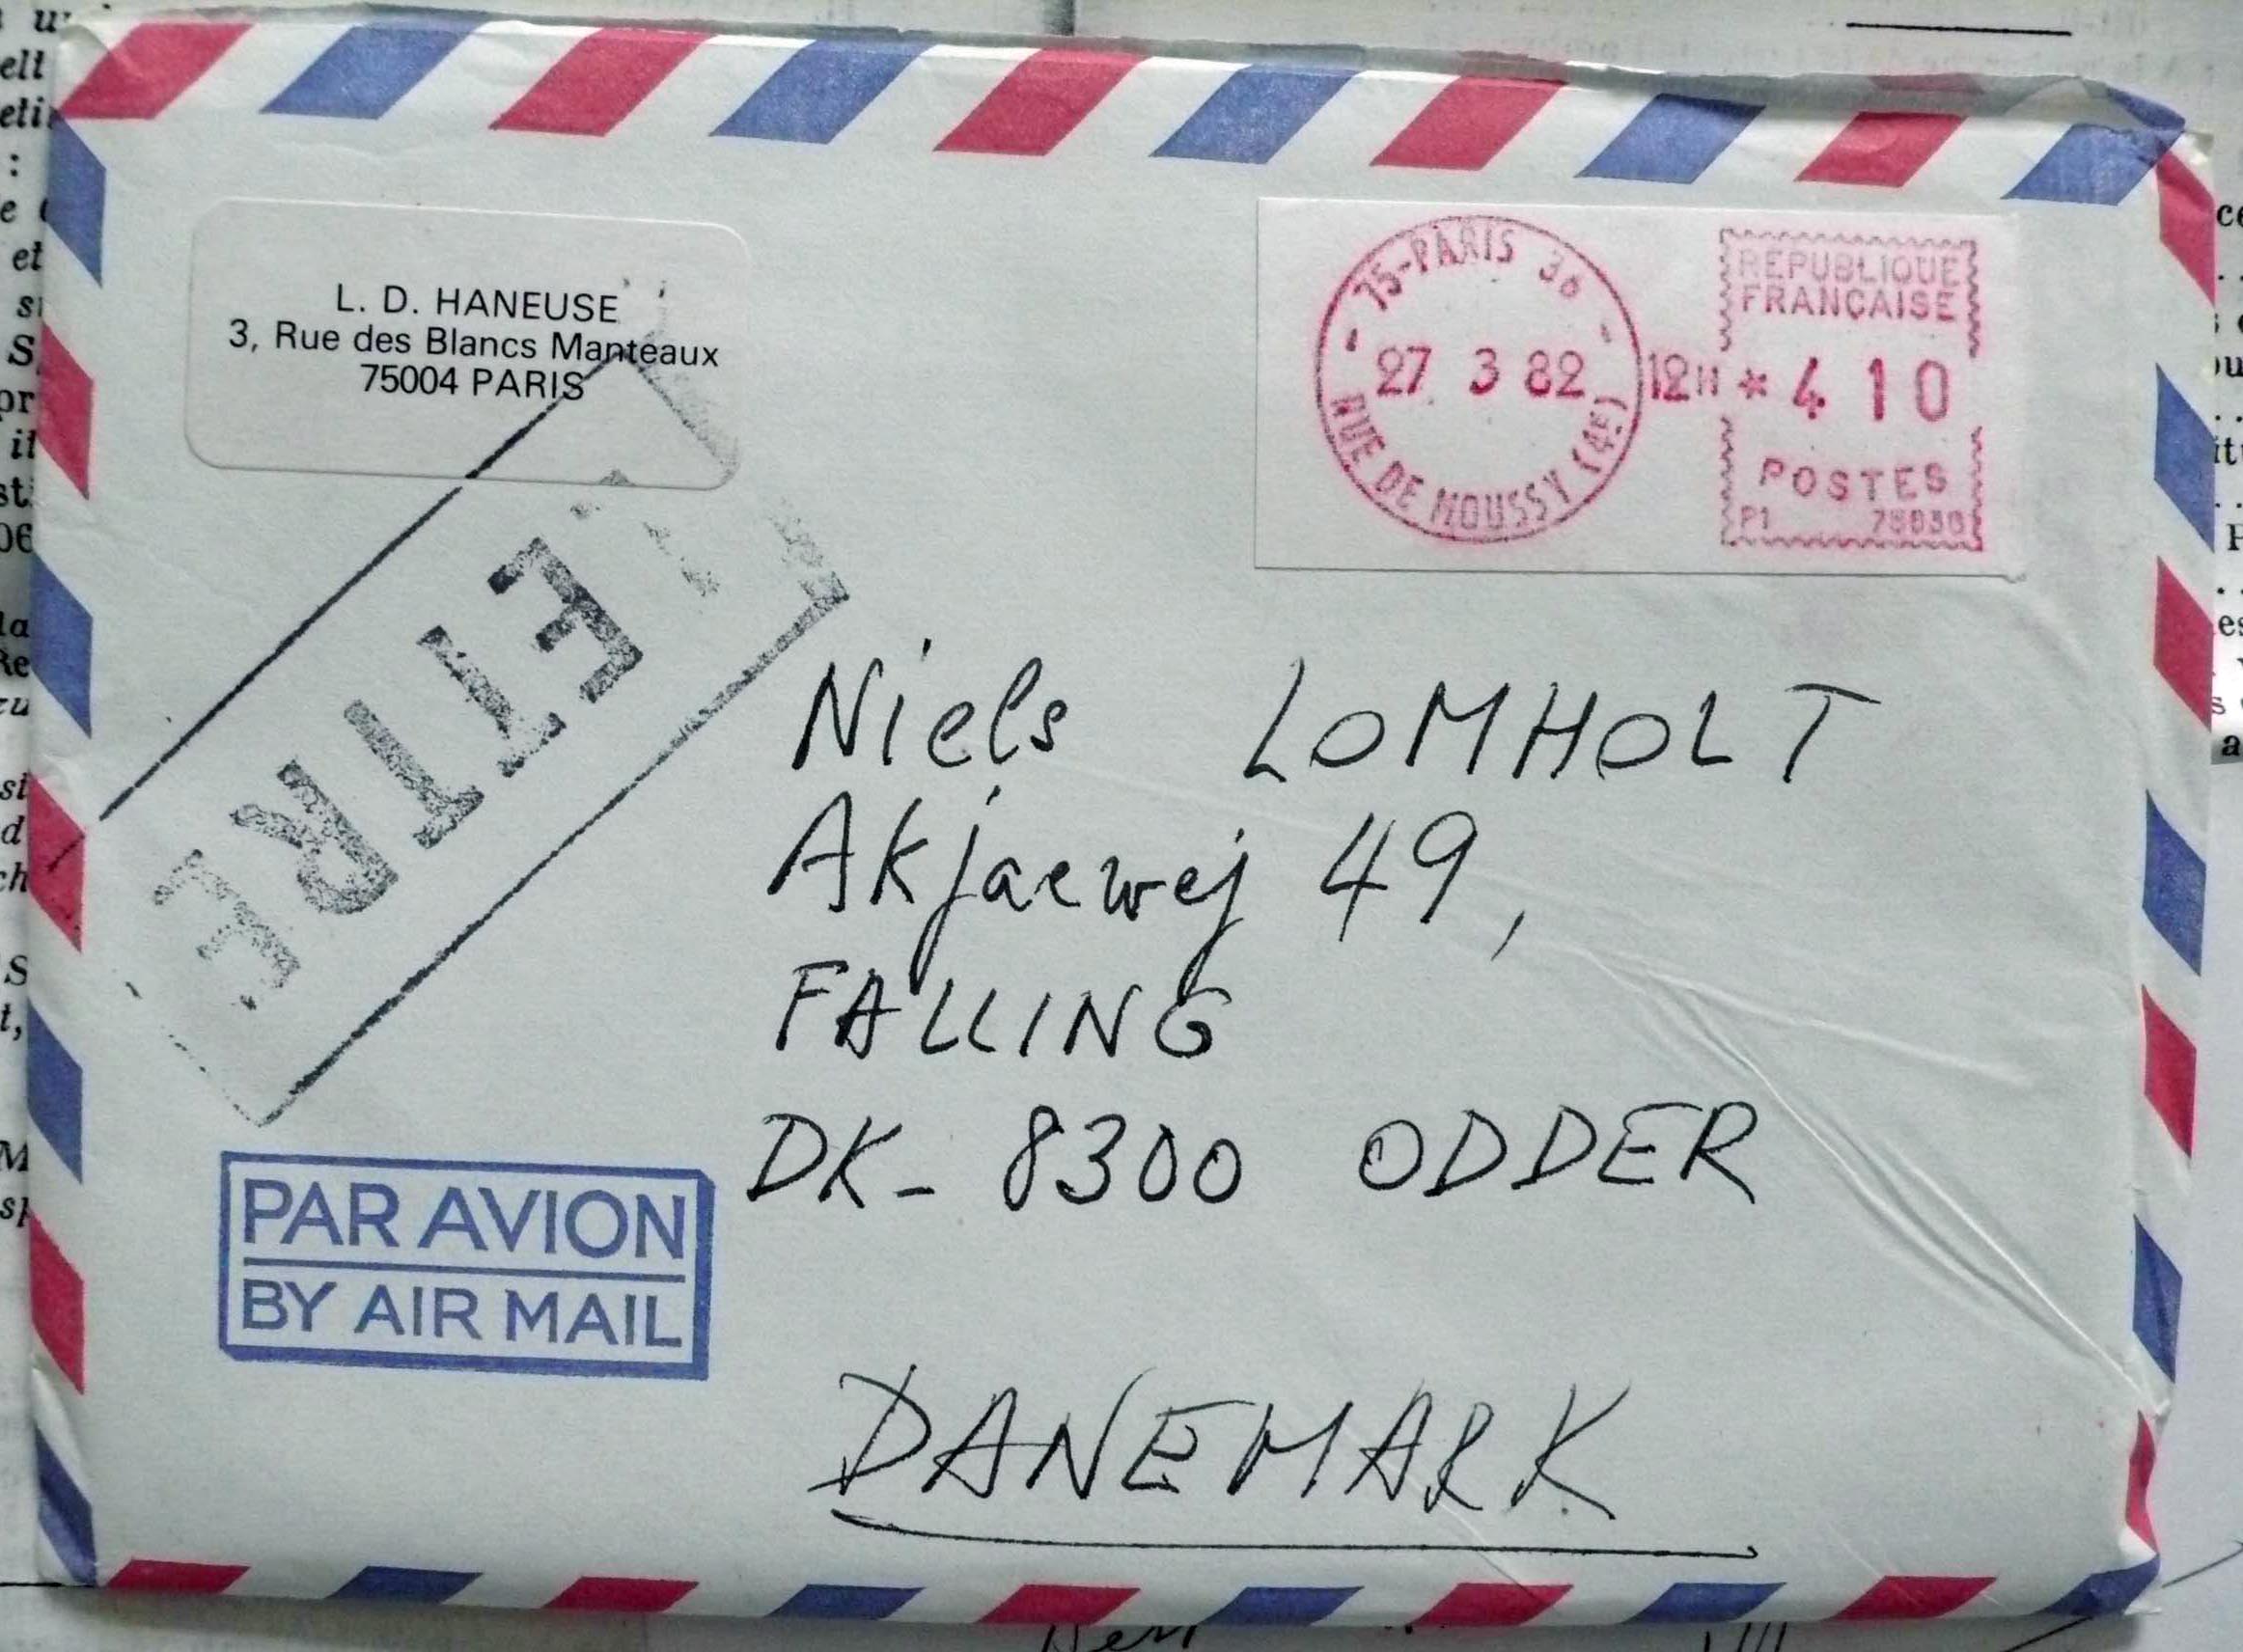 L. D. HANEUSE
3, Rue des Blancs Manteaux
75004 PARIS
75-PARIS 36
27 3 82
RUE DE MOUSSY (4E)
12H
REPUBLIQUE
FRANÇAISE
* 4 10
POSTES
P1
LETTRE
Niels LOMHOLT
Akjaerwej 49,
FALLING
DK- 8300 ODDER
PAR AVION
BY AIR MAIL
DANEMARK